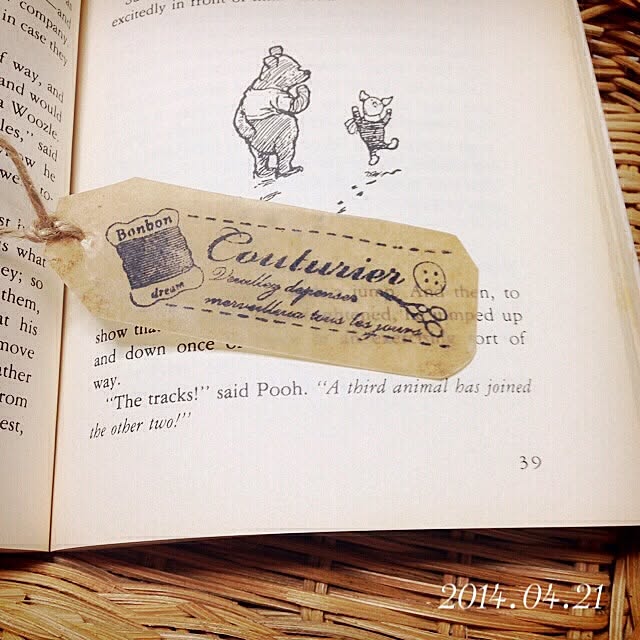 company
in case they
of way, and
and would
a Woozle.
les," said
he
st
s what
ey; so
them,
at his
move
ather
from
est,
excitedly in front of
Bonbon
dream
Couturier
merveilleua tous les jours
jump. And then, to
jumped up
show tha
ort of
and down once or
way.
"The tracks!" said Pooh. "A third animal has joined
the other two!"
39
2014.04.21